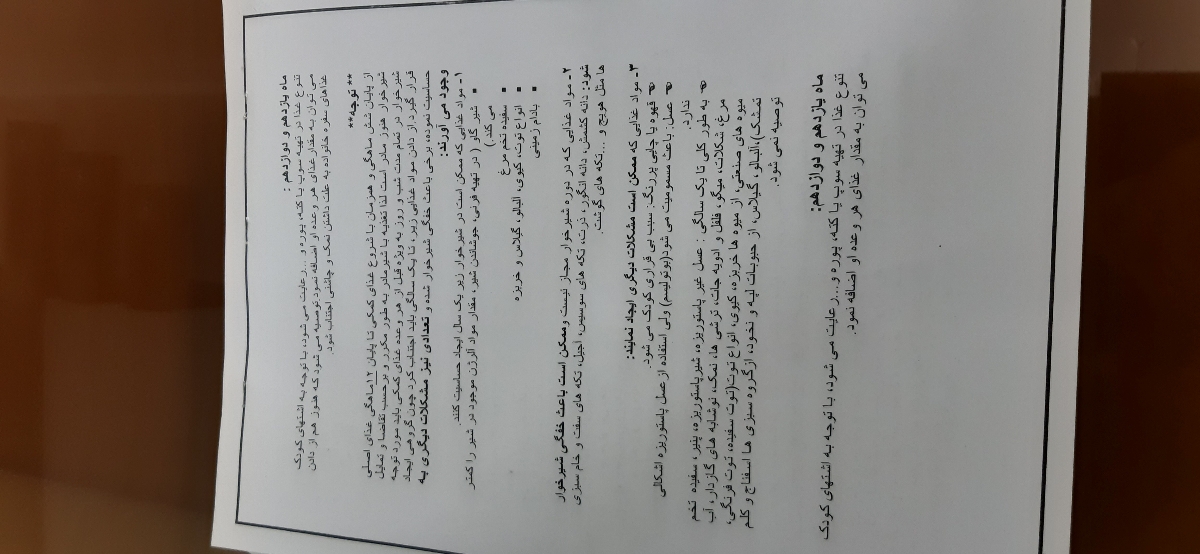 ماه یازدهم و دوازدهم :
تنوع غذا در تهیه سوپ یا کته، پوره و...رعایت می شود، با توجه به اشتهای کودک
می توان به مقدار غذای هر وعده او اضافه نمود توصیه می شود که هنوز هم از دادن
غذاهای سفره خانواده به علت داشتن نمک و چاشنی اجتناب شود.
** توجه**
از پایان شش ماهگی و همزمان با شروع غذای کمکی تا پایان ۱۲ماهگی غذای اصلی
شیرخوار هنوز شیر مادر است لذا تغذیه با شیرمادر به طور مکرر و برحسب تقاضا و تمایل
شیرخوار در تمام مدت شب و روز به ویژه قبل از هر وعده غذای کمکی باید مورد توجه
قرار گیرد.از دادن مواد غذایی زیر، تا یک سالگی باید اجتناب کرد چون گروهی ایجاد
حساسیت نموده، برخی باعث خفگی شیرخوار شده و تعدادی نیز مشکلات دیگری به
وجود می آورند:
۱- مواد غذایی که ممکن است در شیرخوار زیر یک سال ایجاد حساسیت کنند.
▪ شیر گاو ( در تهیه فرنی، جوشاندن شیر، مقدار مواد آلرژن موجود در شیر را کمتر
می کند.)
▪ سفیده تخم مرغ
▪ انواع توت، کیوی، آلبالو، گیلاس و خربزه
▪ بادام زمینی
۲- مواد غذایی که در دوره شیرخوار مجاز نیست وممکن است باعث خفگی شیرخوار
شود: دانه کشمش، دانه انگور، ذرت، تکه های سوسیس، آجیل، تکه های سفت و خام سبزی
ها مثل هویج و ...تکه های گوشت.
۳- مواد غذایی که ممکن است مشکلات دیگری ایجاد نمایند:
قهوه یا چایی پررنگ: سبب بی قراری کودک می شود.
عسل: باعث مسمومیت می شود(بوتولیسم) ولی استفاده از عسل پاستوریزه اشکالی
ندارد.
به طور کلی تا یک سالگی : عسل غیر پاستوریزه، شیرپاستوریزه، پنیر، سفیده تخم
مرغ، شکلات، میگو، فلفل و ادویه جات، ترشی ها، نمک، نوشابه های گازدار، آب
میوه های صنعتی، از میوه ها خربزه، کیوی، انواع توت(توت سفیده، توت فرنگی،
تمشک)،آلبالو، گیلاس، از حبوبات لپه و نخود، ازگروه سبزی ها اسفناج و کلم
توصیه نمی شود.
ماه یازدهم و دوازدهم:
تنوع غذا در تهیه سوپ یا کته، پوره و...رعایت می شود، با توجه به اشتهای کودک
می توان به مقدار غذای هر وعده او اضافه نمود.